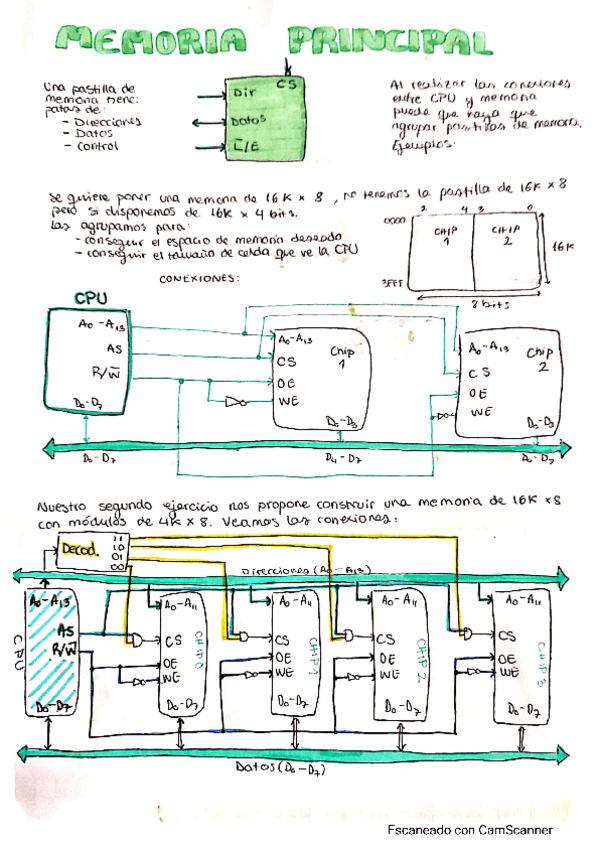 MEMORIA PRINCIPAL
Una pastilla de
memoria tiene:
patas de:
- Direcciones
- Datos
- Control
CS
Dir
Datos
L/E
Al realizar las conexiones
entre CPU y memoria
puede que haya que
agrupar pastillas de memoria.
Ejemplos:
Se quiere poner una memoria de 16K x 8, no tenemos la pastilla de 16K x 8
pero si disponemos de 16K x 4 bits.
Las agrupamos para:
- conseguir el espacio de memoria deseado
- conseguir el tamaño de celda que ve la CPU
7 4 3 0
0000
CHIP 1
CHIP 2
16K
3FFF
8 bits
CONEXIONES:
CPU
A0-A13
AS
R/W
D0-D7
A0-A13
CS
OE
WE
Chip 1
D0-D3
A0-A13
CS
OE
WE
Chip 2
D0-D3
D0-D7
D4-D7
D0-D7
Nuestro segundo ejercicio nos propone construir una memoria de 16K x8
con módulos de 4K x 8. Veamos las conexiones:
Decod.
11
10
01
00
Direcciones (A0-A13)
CPU
A0-A13
AS
R/W
D0-D7
A0-A11
CS
OE
WE
D0-D7
CHIP 0
A0-A11
CS
OE
WE
D0-D7
CHIP 1
A0-A11
CS
OE
WE
D0-D7
CHIP 2
A0-A11
CS
OE
WE
D0-D7
CHIP 3
Datos (D0-D7)
Escaneado con CamScanner